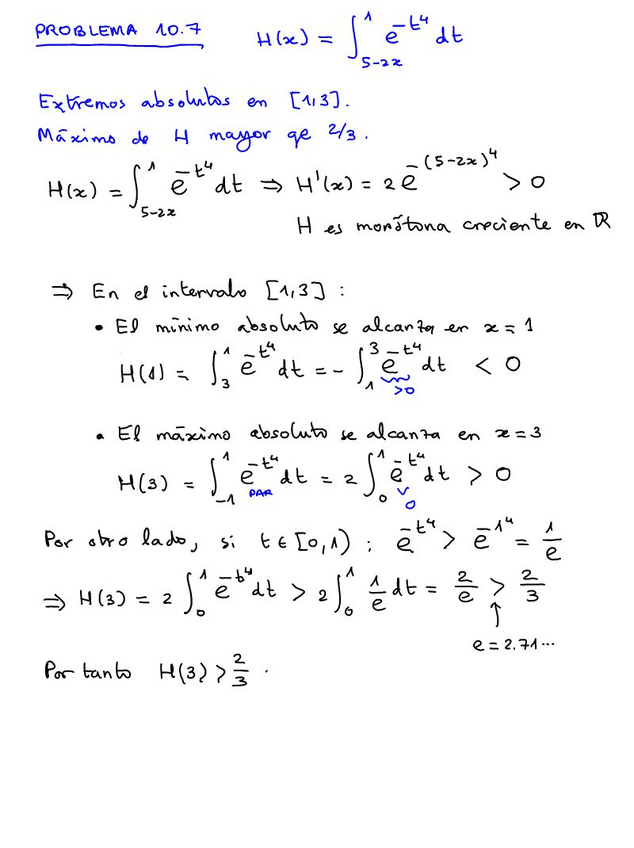 PROBLEMA 10.7 H(x) = ∫_{5-2x}^{1} e^{-t⁴} dt
Extremos absolutos en [1,3].
Máximo de H mayor qe 2/3.
H(x) = ∫_{5-2x}^{1} e^{-t⁴} dt ⇒ H'(x) = 2 e^{-(5-2x)⁴} > 0
H es monótona creciente en ℝ
⇒ En el intervalo [1,3] :
• El mínimo absoluto se alcanza en x = 1
H(1) = ∫_{3}^{1} e^{-t⁴} dt = - ∫_{1}^{3} e^{-t⁴} dt < 0
>0
• El máximo absoluto se alcanza en x = 3
H(3) = ∫_{-1}^{1} e^{-t⁴} dt = 2 ∫_{0}^{1} e^{-t⁴} dt > 0
PAR v 0
Por otro lado, si t ∈ [0,1) : e^{-t⁴} > e^{-1⁴} = 1/e
⇒ H(3) = 2 ∫_{0}^{1} e^{-t⁴} dt > 2 ∫_{0}^{1} 1/e dt = 2/e > 2/3
↑
e = 2.71...
Por tanto H(3) > 2/3 .